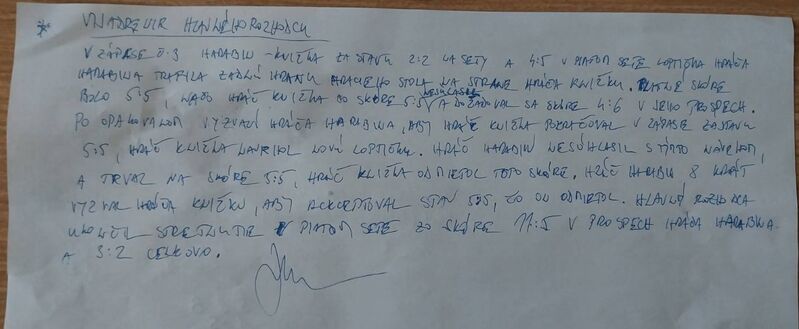 * VYJADRENIE HLAVNÉHO ROZHODCU
V ZÁPASE č.3 HARABIN - KNIŽKA ZA STAVU 2:2 NA SETY A 4:5 V PIATOM SETE LOPTIČKA HRÁČA
HARABINA TRAFILA ZADNÚ HRANU HRACIEHO STOLA NA STRANE HRÁČA KNIŽKU. PLATNÉ SKÓRE
BOLO 5:5, HRÁČ KNIŽKA SO SKÓRE 5:5 NESÚHLASIL A DOŽADOVAL SA SKÓRE 4:6 V JEHO PROSPECH.
PO OPAKOVANOM VYZVANÍ HRÁČA HARABINA, ABY HRÁČ KNIŽKA POKRAČOVAL V ZÁPASE ZA STAVU
5:5, HRÁČ KNIŽKA NAVRHOL NOVÚ LOPTIČKU. HRÁČ HARABIN NESÚHLASIL S TÝMTO NÁVRHOM,
A TRVAL NA SKÓRE 5:5, HRÁČ KNIŽKA ODMIETOL TOTO SKÓRE. HRÁČ HARABIN 8 KRÁT
VYZVAL HRÁČA KNIŽKU, ABY AKCEPTOVAL STAV 5:5, ČO ON ODMIETOL. HLAVNÝ ROZHODCA
UKONČIL STRETNUTIE V PIATOM SETE ZO SKÓRE 11:5 V PROSPECH HRÁČA HARABINA
A 3:2 CELKOVO.